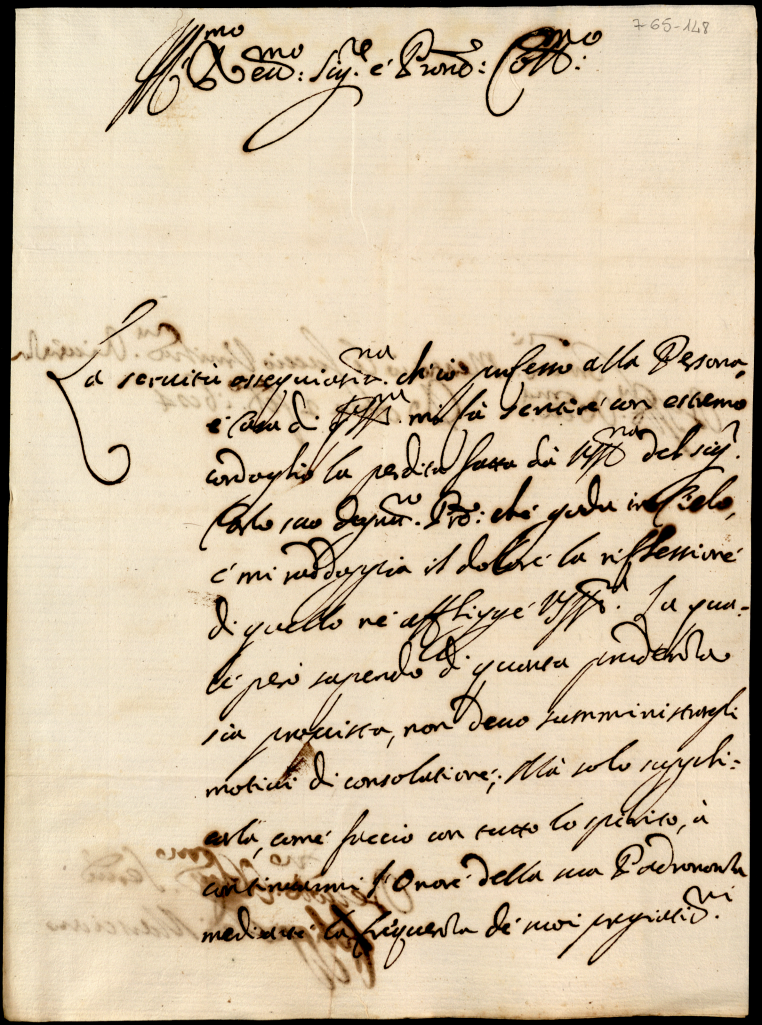 7-65-148
Ill.mo Rev.mo Sig.re e Pron.e Coll.mo
La servitù ossequiosis.ma ch'io professo alla Persona,
e Casa di V.S.Ill.ma mi fà sentire con estremo
cordoglio la perdita fatta da V.S.Ill.ma del Sig.r
Carlo suo degniss.mo che goda in Cielo,
e mi raddoppia il dolore la riflessione
di quello ne affligge V.S.Ill.ma La qua-
le però sapendo di quanta prudenza
sia provista, non devo sumministrargli
motivi di consolatione; Mà solo suppli-
carla, come faccio con tutto lo spirito, à
continuarmi l'onore della sua Padronanza
mediante la frequenza de suoi pregiatis.mi